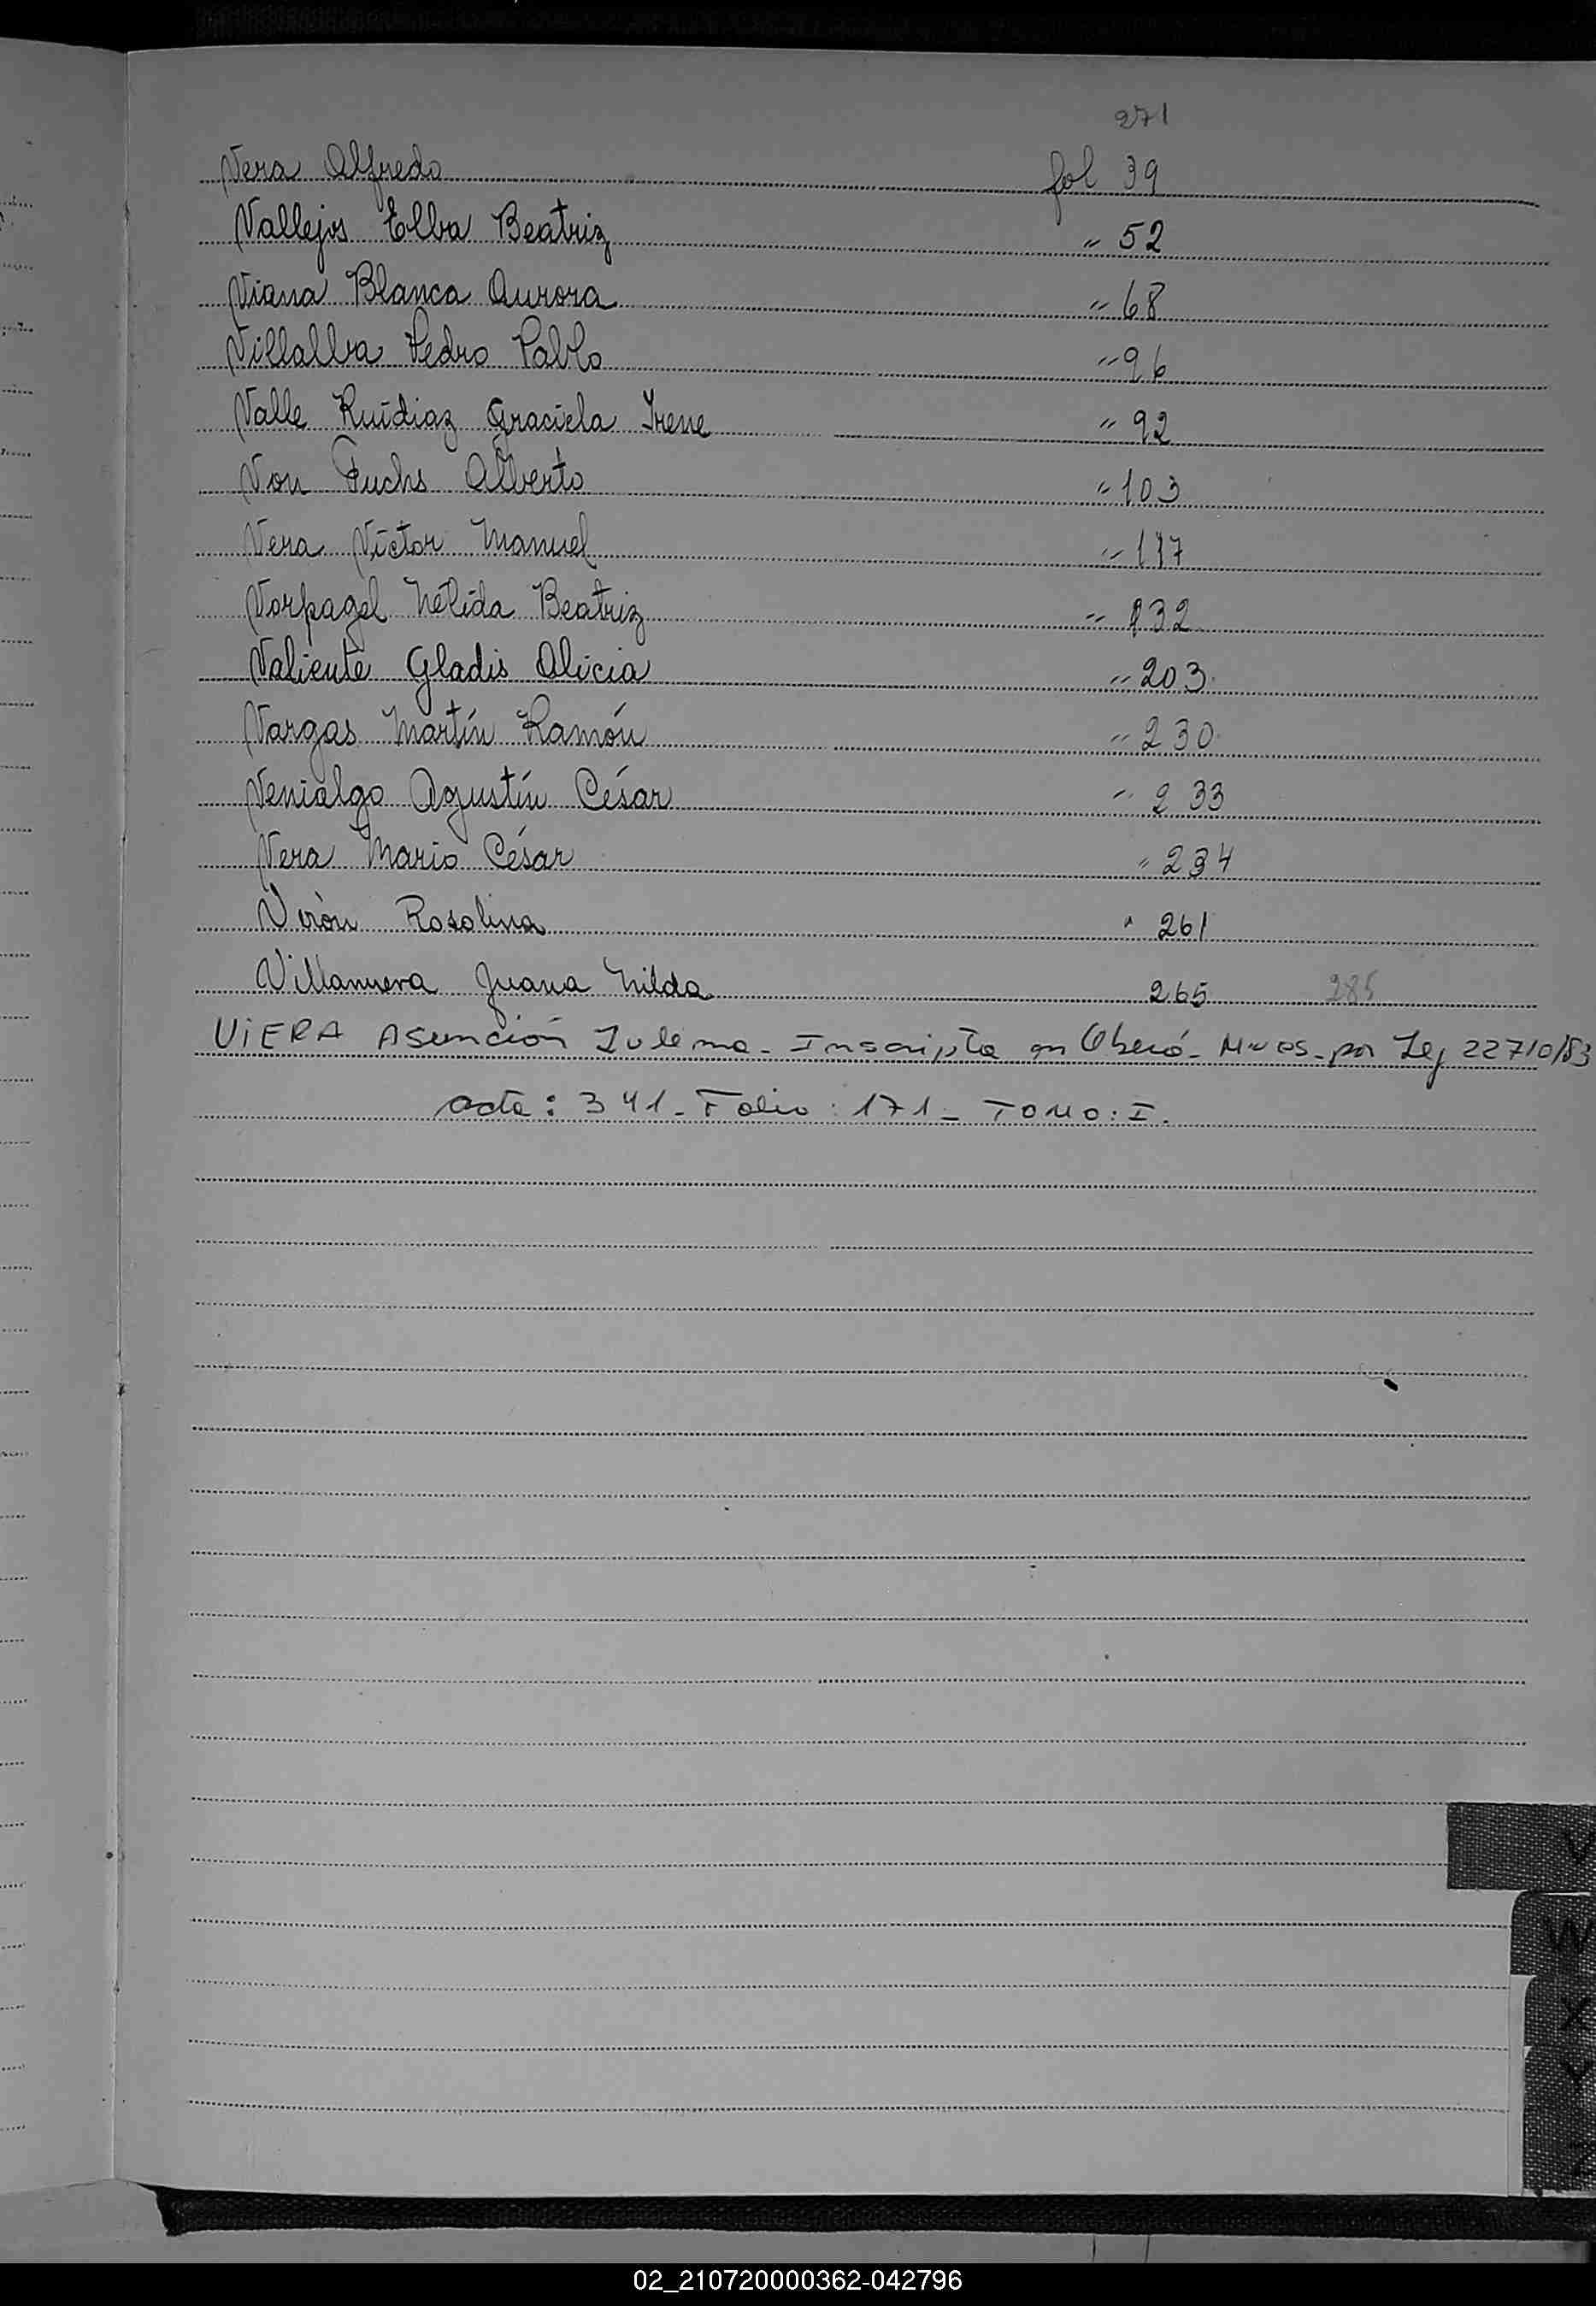 271
Vera Alfredo fol 39
Vallejos Elba Beatriz " 52
Viana Blanca Aurora " 68
Villalba Pedro Pablo " 96
Valle Ruidiaz Graciela Irene " 92
Von Fuchs Alberto " 103
Vera Víctor Manuel " 117
Vorpagel Nélida Beatriz " 132
Valiente Gladis Alicia " 203
Vargas Martín Ramón " 230
Venialgo Agustín César " 233
Vera Mario César " 234
Virón Rosalina " 261
Villanueva Juana Nilda 265 285
ViERA Asunción Zulema - Inscripta en Oberá - Mnes - por Ley 22710/83
acta: 341 - Folio: 171 - TOMO: I.
V
W
X
Y
Z
02_210720000362-042796